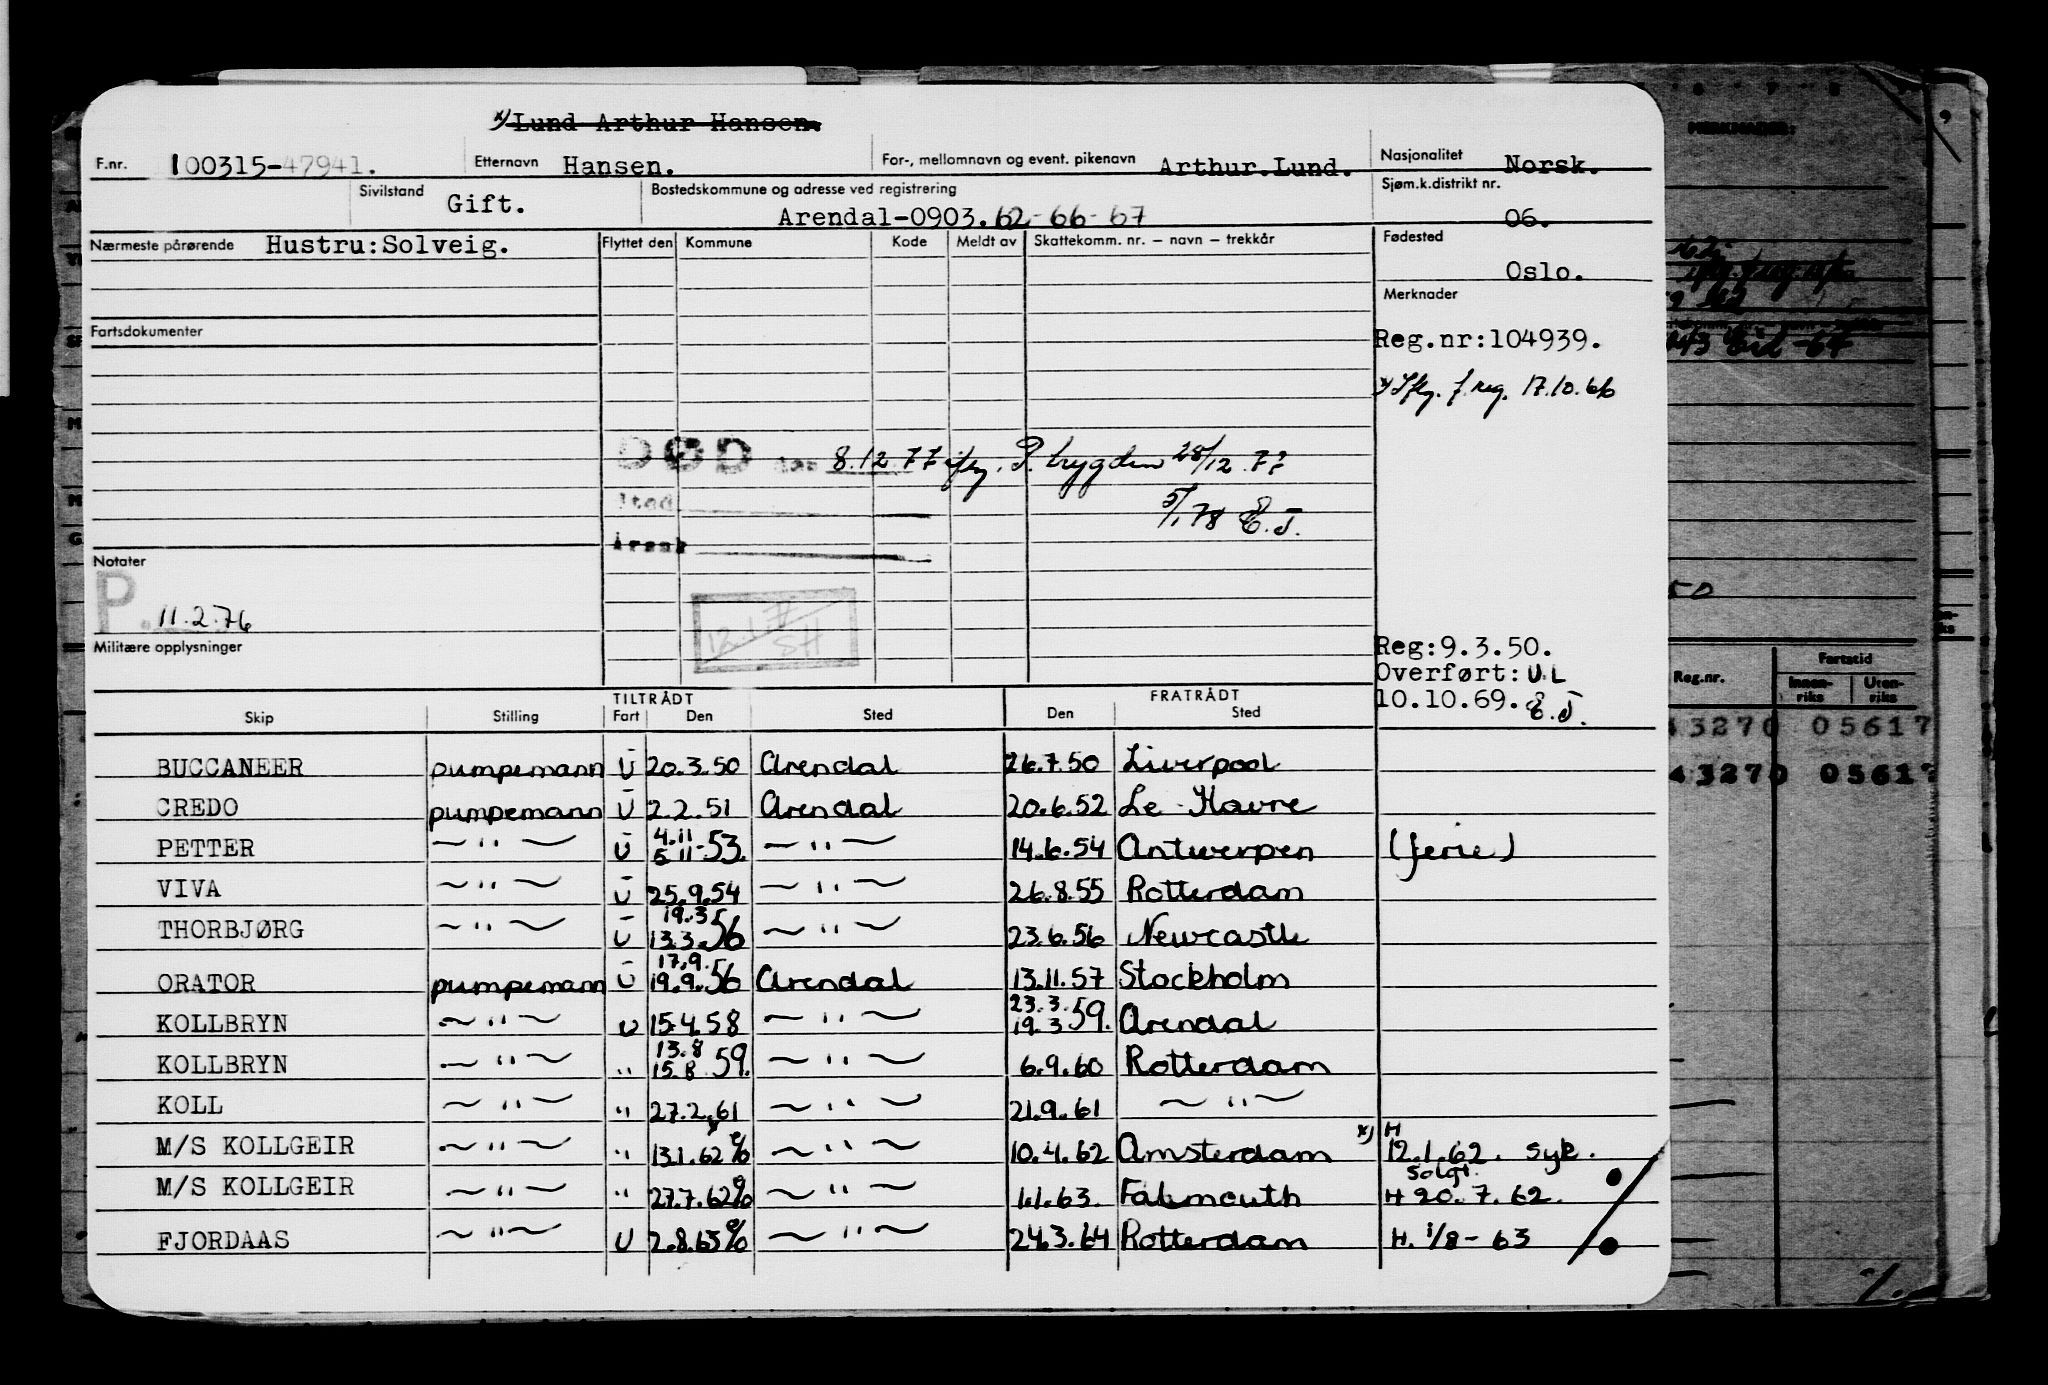 x) Lund Arthur Hansen
F.nr. 100315-47941. Etternavn Hansen. For-, mellomnavn og event. pikenavn Arthur.Lund. Nasjonalitet Norsk.
Sivilstand Gift. Bostedskommune og adresse ved registrering Arendal-0903. 62-66-67 Sjøm.k.distrikt nr. 06.
Nærmeste pårørende Hustru:Solveig. Flyttet den Kommune Kode Meldt av Skattekomm. nr. – navn – trekkår Fødested
Oslo.
Merknader
Fartsdokumenter
Reg.nr:104939.
x) Iflg. f.reg. 17.10.66
DØD den 8.12.77 iflg. P. trygden 28/12 77
I sted
5/1 78 E.J.
Årsak
Notater
P. 11.2.76
12.1.77
SH
Militære opplysninger
Reg:9.3.50.
Overført: U.L
10.10.69. E.J.
TILTRÅDT FRATRÅDT
Skip Stilling Fart Den Sted Den Sted
BUCCANEER pumpemann U 20.3.50 Arendal 26.7.50 Liverpool
CREDO pumpemann U 2.2.51 Arendal 20.6.52 Le Havre
PETTER —"— U 4.11 5.11-53. —"— 14.6.54 Antwerpen (ferie)
VIVA —"— U 25.9.54 —"— 26.8.55 Rotterdam
THORBJØRG —"— U 19.3 13.3.56 —"— 23.6.56 Newcastle
ORATOR pumpemann U 17.9. 19.9.56 Arendal 13.11.57 Stockholm
KOLLBRYN —"— U 15.4.58 —"— 23.3. 19.3 59. Arendal
KOLLBRYN —"— " 13.8 15.8 59. —"— 6.9.60 Rotterdam
KOLL —"— " 27.2.61 —"— 21.9.61 —"—
M/S KOLLGEIR —"— " 13.1.62 % —"— 10.4.62 Amsterdam x) H 12.1.62. syk.
solgt.
M/S KOLLGEIR —"— " 27.7.62 % —"— 1.1.63. Falmouth H 20.7.62.
FJORDAAS —"— U 2.8.63 % —"— 24.3.64 Rotterdam H. 1/8-63
MERKNADER:
Reg.nr. Fartstid
Innen-riks Uten-riks
43270 05617
43270 05617